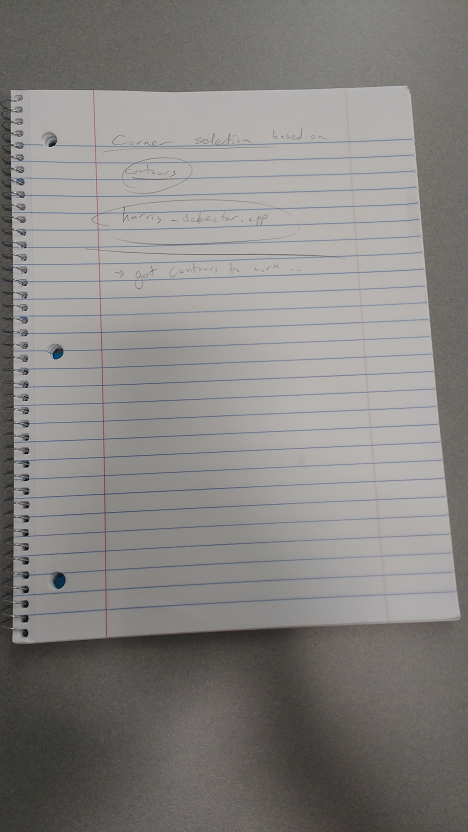 Corner selection based on
contours
harris_detector.cpp
→ got contours to work ..